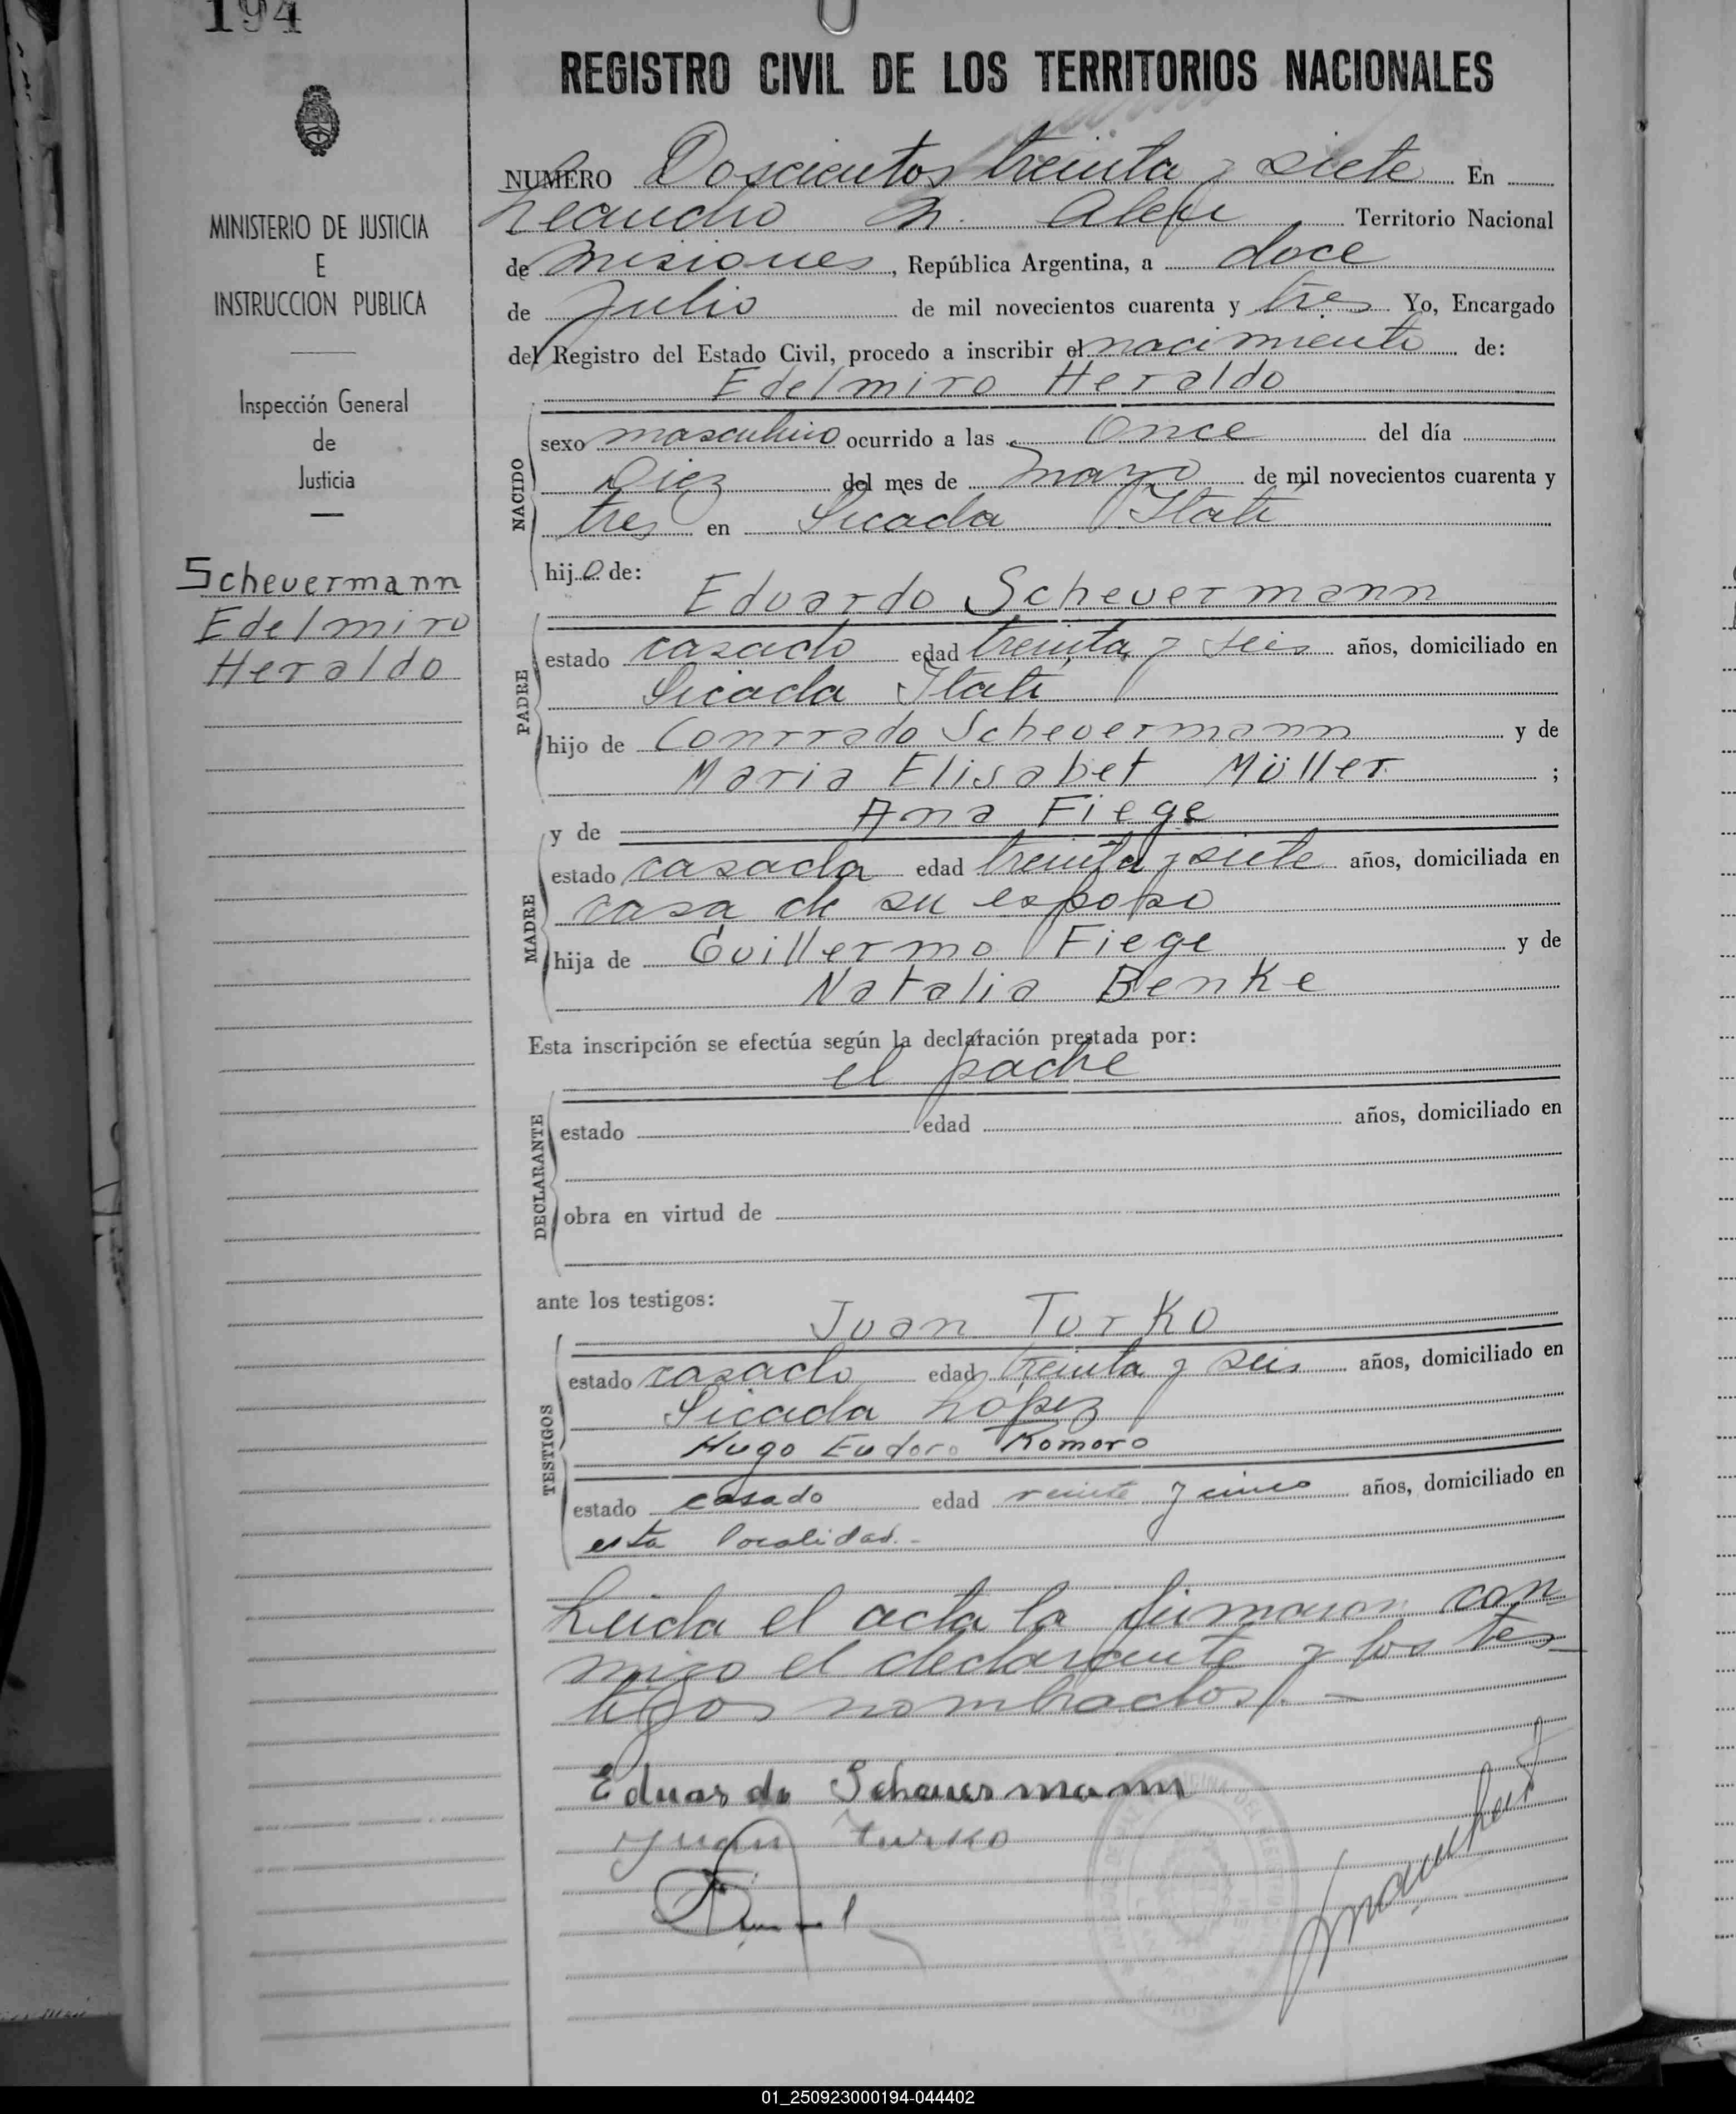 194
MINISTERIO DE JUSTICIA
E
INSTRUCCION PUBLICA
Inspección General
de
Justicia
Scheuermann
Edelmiro
Heraldo
REGISTRO CIVIL DE LOS TERRITORIOS NACIONALES
NUMERO Doscientos treinta y siete En
Leandro N. Alem Territorio Nacional
de Misiones, República Argentina, a doce
de Julio de mil novecientos cuarenta y tres Yo, Encargado
del Registro del Estado Civil, procedo a inscribir el nacimiento de:
Edelmiro Heraldo
NACIDO
sexo masculino ocurrido a las Once del día
Diez del mes de Mayo de mil novecientos cuarenta y
tres en Picada Itati
hijo de:
Eduardo Scheuermann
PADRE
estado casado edad treinta y seis años, domiciliado en
Picada Itati
hijo de Conrrado Scheuermann y de
Maria Elisabet Müller ;
y de Ana Fiege
MADRE
estado casada edad treinta y siete años, domiciliada en
casa de su esposo
hija de Guillermo Fiege y de
Natalia Benke
Esta inscripción se efectúa según la declaración prestada por:
el padre
DECLARANTE
estado edad años, domiciliado en
obra en virtud de
ante los testigos:
Juan Turko
TESTIGOS
estado casado edad treinta y seis años, domiciliado en
Picada López
Hugo Eudoro Romero
estado casado edad veinte y cinco años, domiciliado en
esta localidad.-
Leida el acta la firmaron con-
migo el declarante y los tes-
tigos nombrados.-
Eduardo Scheuermann
Juan Turko
01_250923000194-044402